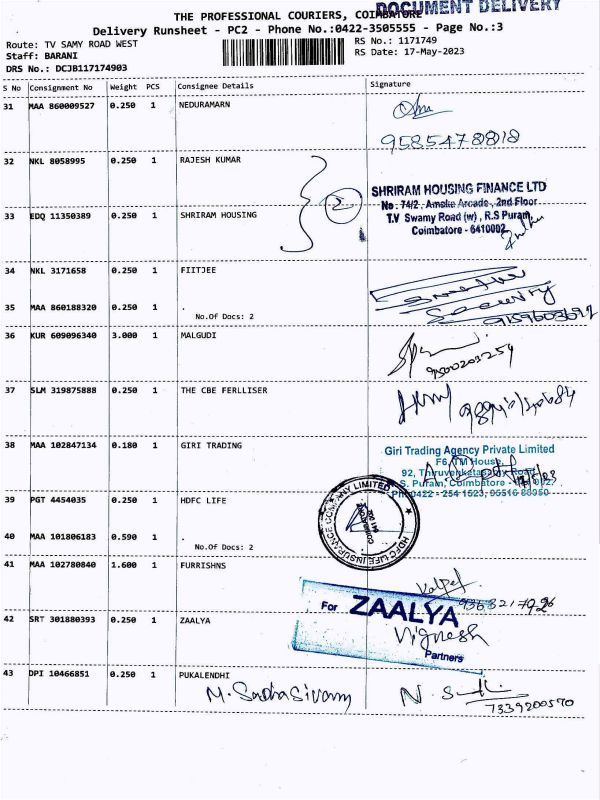 DOCUMENT DELIVERY
THE PROFESSIONAL COURIERS, COIMBATORE
Delivery Runsheet - PC2 - Phone No.:0422-3505555 - Page No.:3
Route: TV SAMY ROAD WEST
RS No.: 1171749
Staff: BARANI
RS Date: 17-May-2023
DRS No.: DCJB117174903
S No Consignment No Weight PCS Consignee Details Signature
31 MAA 860009527 0.250 1 NEDURAMARN
9585478818
32 NKL 8058995 0.250 1 RAJESH KUMAR
2
SHRIRAM HOUSING FINANCE LTD
No : 74/2, Amsike Arcade, 2nd Floor
33 EDQ 11350389 0.250 1 SHRIRAM HOUSING
T.V Swamy Road (w) , R.S Puram,
Coimbatore - 6410002
34 NKL 3171658 0.250 1 FIITJEE
35 MAA 860188320 0.250 1 .
No.Of Docs: 2
Security
36 KUR 609096340 3.000 1 MALGUDI
9500203254
37 SLM 319875888 0.250 1 THE CBE FERLLISER
38 MAA 102847134 0.180 1 GIRI TRADING
Giri Trading Agency Private Limited
F6, TM House,
92, Thiruvenkatasamy Road
S. Puram, Coimbatore -
Ph:0422 - 254 1523, 96516 80950
39 PGT 4454035 0.250 1 HDFC LIFE
HDFC LIFE INSURANCE COMPANY LIMITED
COIMBATORE
641 002
40 MAA 101806183 0.590 1 .
No.Of Docs: 2
41 MAA 102780840 1.600 1 FURRISHNS
For ZAALYA
42 SRT 301880393 0.250 1 ZAALYA
Vignesh
Partners
43 DPI 10466851 0.250 1 PUKALENDHI
M. Sadhasivam
7339200570